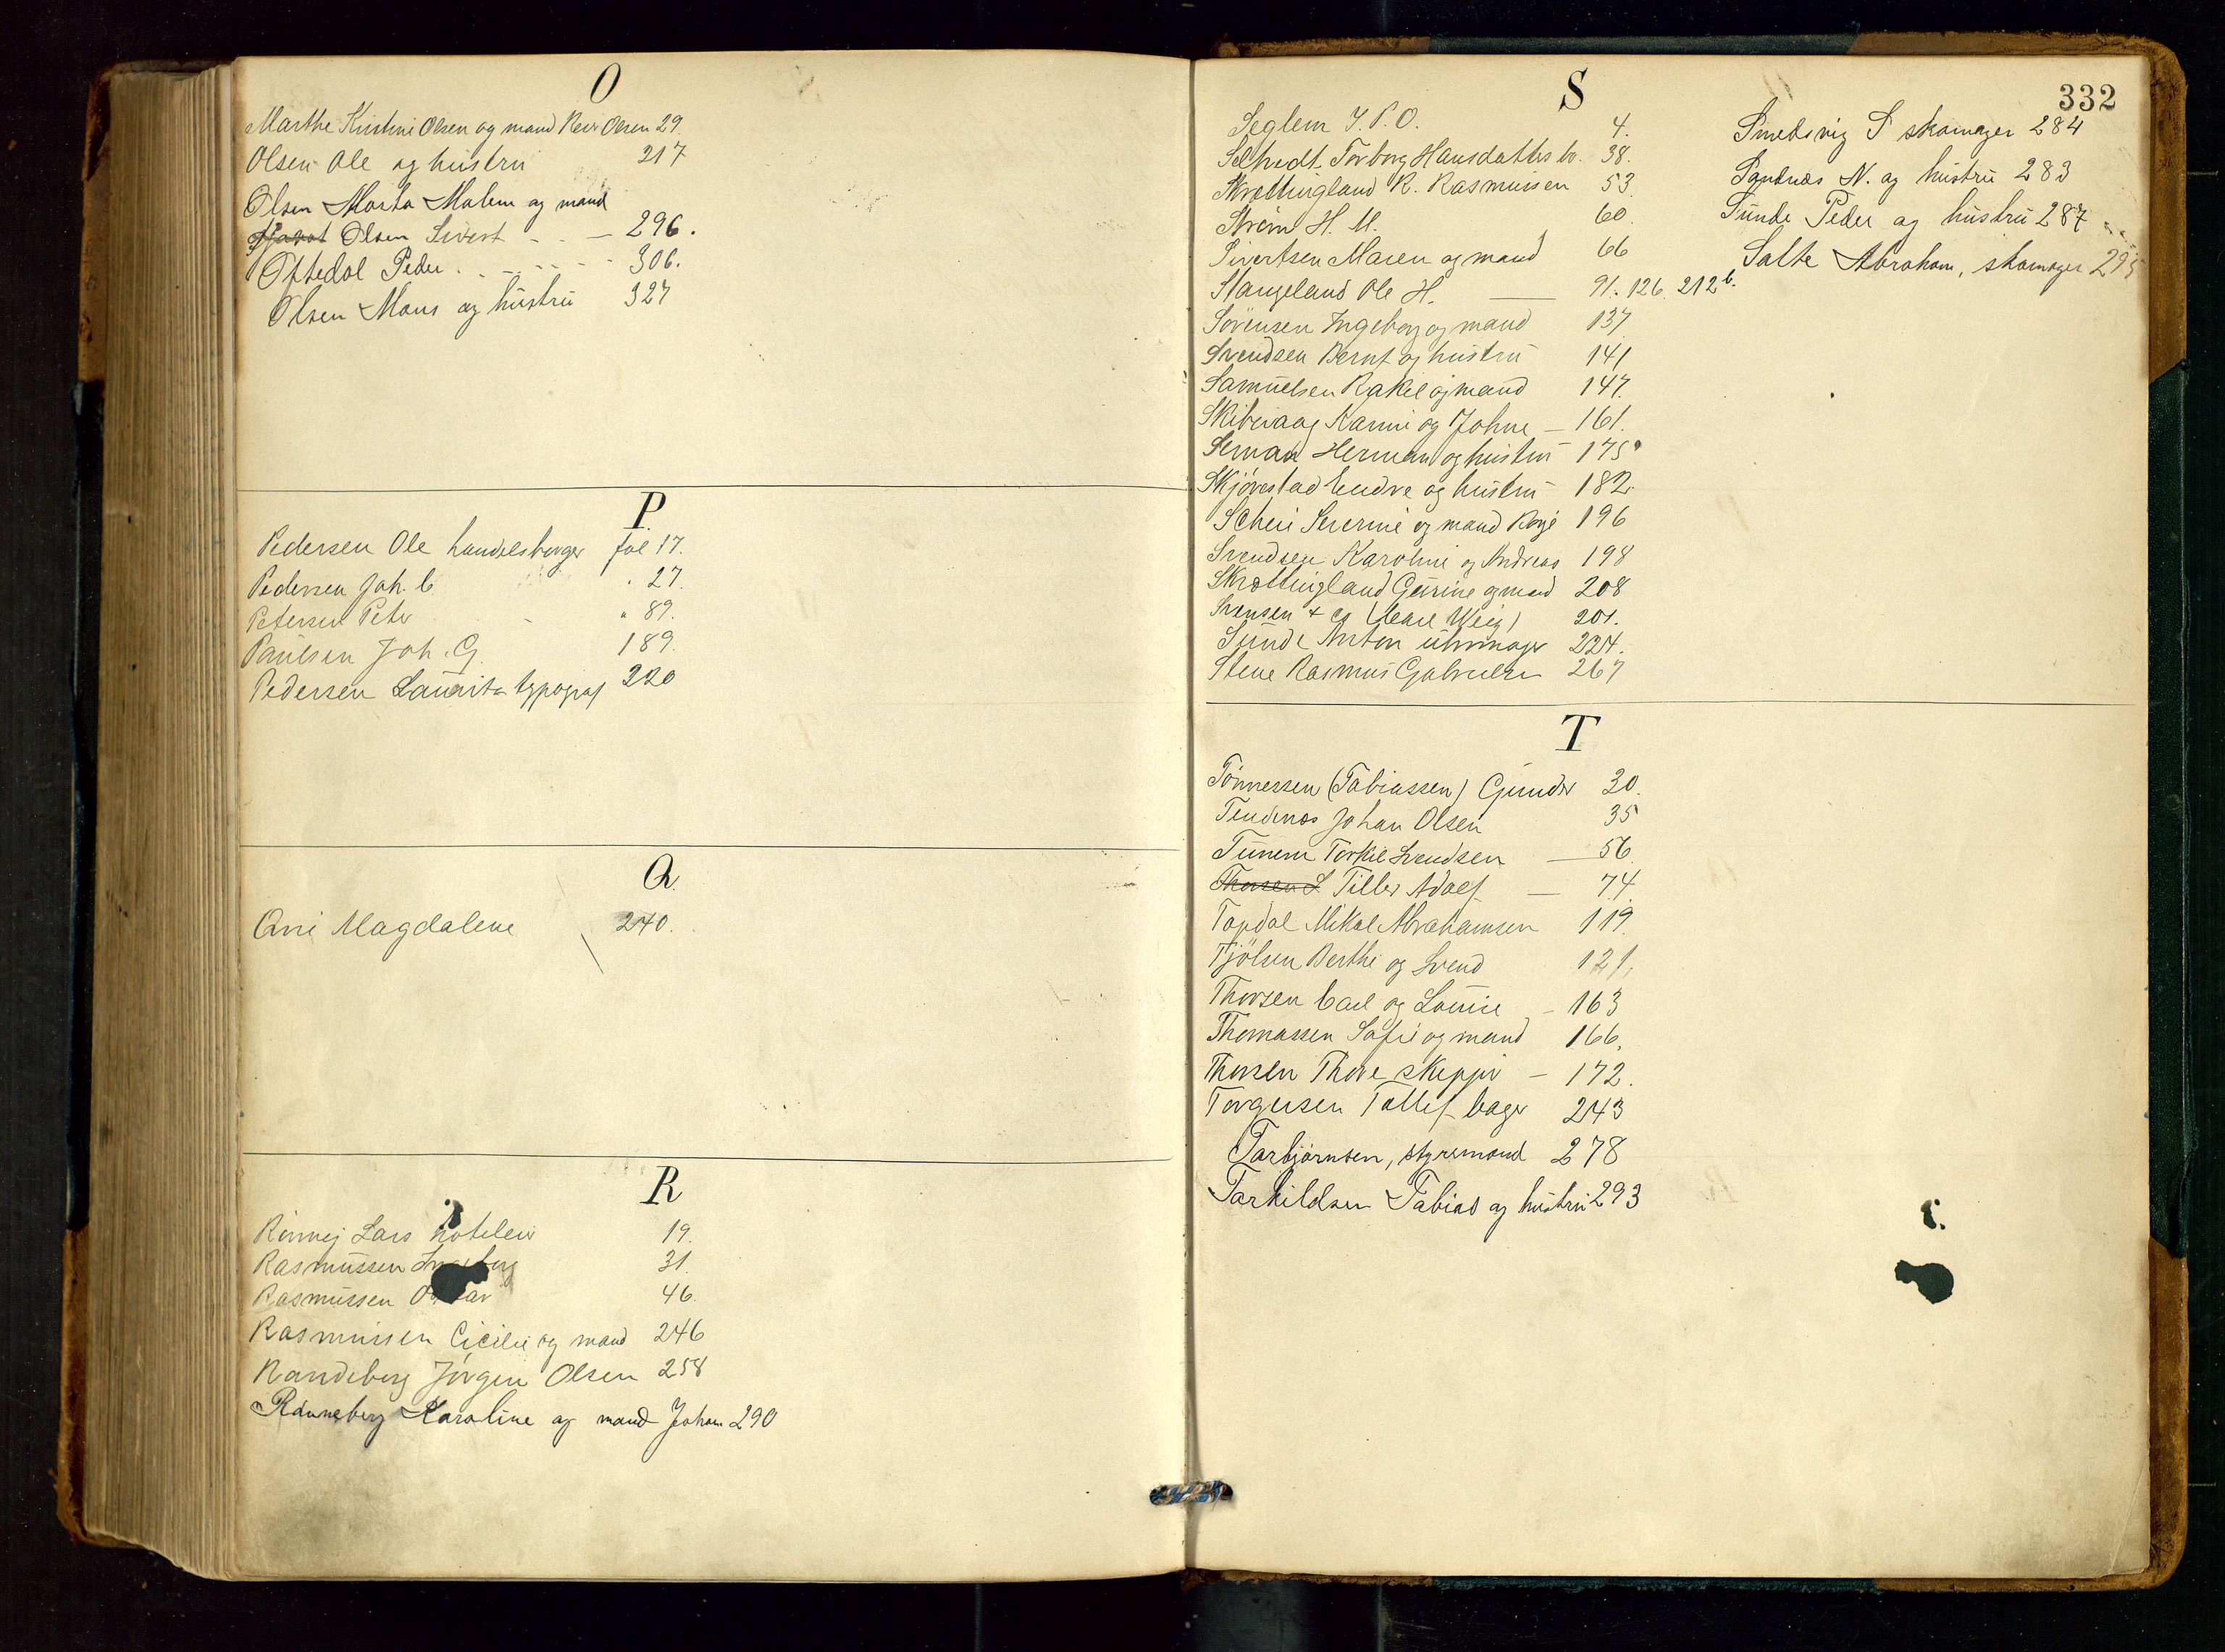 O
Marthe Kristine Olsen og mand Olsen 29.
Olsen Ole og hustru 217
Olsen Marta Malene og mand
Olsen Sivert - - - 296.
Oftedal Peder . - - - - - 306.
Olsen Mons og hustru 327
P.
Pedersen Ole handelsborger fol 17.
Pedersen Joh. C. " 27.
Petersen Peter " 89.
Paulsen Joh. G. 189.
Pedersen Laurits typograf 220
Q.
Magdalene 240.
R
Lars hotelier 19.
Rasmussen Ingeborg 31.
Rasmussen 46.
Rasmussen Cicilie og mand 246
Randeberg Jörgen Olsen 258
Rönneberg Karoline og mand Johan 290
332
S
Seglem J. P. O. 4.
Torborg Hansdatter 38.
Skrettingland R. Rasmussen 53
Ström H. M. 60.
Sivertsen Maren og mand 66
Stangeland Ole H. — 91. 126. 212b.
Sörensen Ingeborg og mand 137
Svendsen Bernt og hustru 141
Samuelsen Rakel og mand 147.
Skibevaag Karine og Johne — 161.
Herman og hustru 175a
Skjörestad Endre og hustru 182.
Severine og mand 196
Svendsen Karoline og Andreas 198
Skrettingland Gurine og mand 208
Svensen + Co (Carl Weig) 201.
Sunde Anton uhrmager 224.
Stene Rasmus Gabrielsen 267
Smedsvig S skomager 284
Sandnæs N. og hustru 283
Sunde Peder og hustru 287
Salte Abraham, skomager 295
T
Tönnessen (Tobiassen) Gunder 30.
Tendenæs Johan Olsen 35
Tunem Torkel Svendsen — 56
Thorsen S Tiller Adolf — 74.
Topdal Mikal Abrahamsen 119.
Tjölsen Berthe og Svend 121.
Thorsen Carl og Louise - 163
Thomassen Sofie og mand 166.
Thorsen Thore skipper - 172.
Torgersen Tollef bager 243
Torbjörnsen, styrmand 278
Torkildsen Tobias og hustru 293